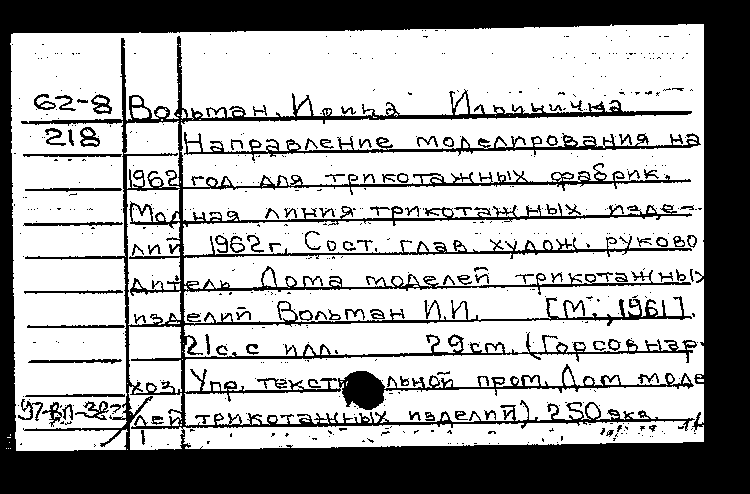 62-8 Вольман, Ирина Ильинична
218 Направление моделирования на
1962 год для трикотажных фабрик.
Модная линия трикотажных изде-
лий 1962г. Сост. глав. худож. руково
дитель Дома моделей трикотажных
изделий Вольман И.И. [М., 1961].
21с. с илл. 29см. (Горсовнар-
хоз. Упр. текстильной пром. Дом моде
лей трикотажных изделий). 250 экз.